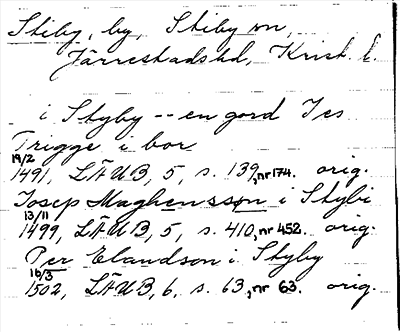 Stiby, by, Stiby sn,
Järrestads hd, Krist. l.
i Styby -- en gord Jes
Trigge i bor
19/2
1491, LÄUB, 5, s. 139, nr 174. orig.
Josep Maghensson i Stybi
13/11
1499, LÄUB, 5, s. 410, nr 452. orig.
Per Elandson i Styby
16/3
1502, LÄUB, 6, s. 63, nr 63. orig.